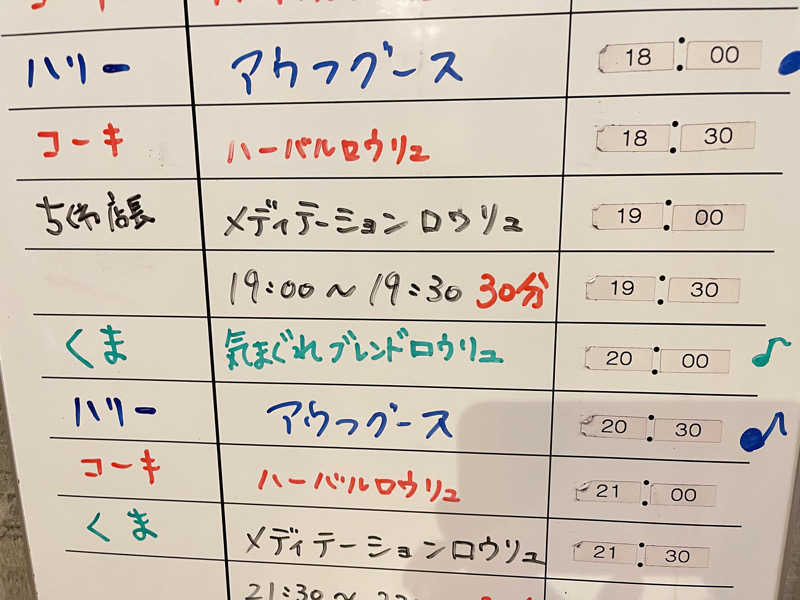 ハリー アウフグース 18:00
コーキ ハーバルロウリュ 18:30
ちくわ店長 メディテーションロウリュ 19:00
19:00～19:30 30分 19:30
くま 気まぐれブレンドロウリュ 20:00
ハリー アウフグース 20:30
コーキ ハーバルロウリュ 21:00
くま メディテーションロウリュ 21:30
21:30～